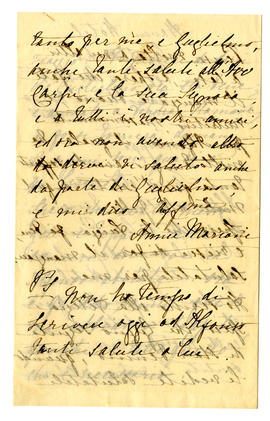 tanto per me, e Guglielmo,
anche tanti saluti all Avv
Carpi, e la sua Signora,
e a tutti i nostri amici,
ed ora non avendo altro
da dirve di salutar anche
da parte di Guglielmo
e mi dico Aff ma
Annie Marconi
PS
Non ho tempo di
scrivere oggi ad Alfonso
tanti saluti a lui.